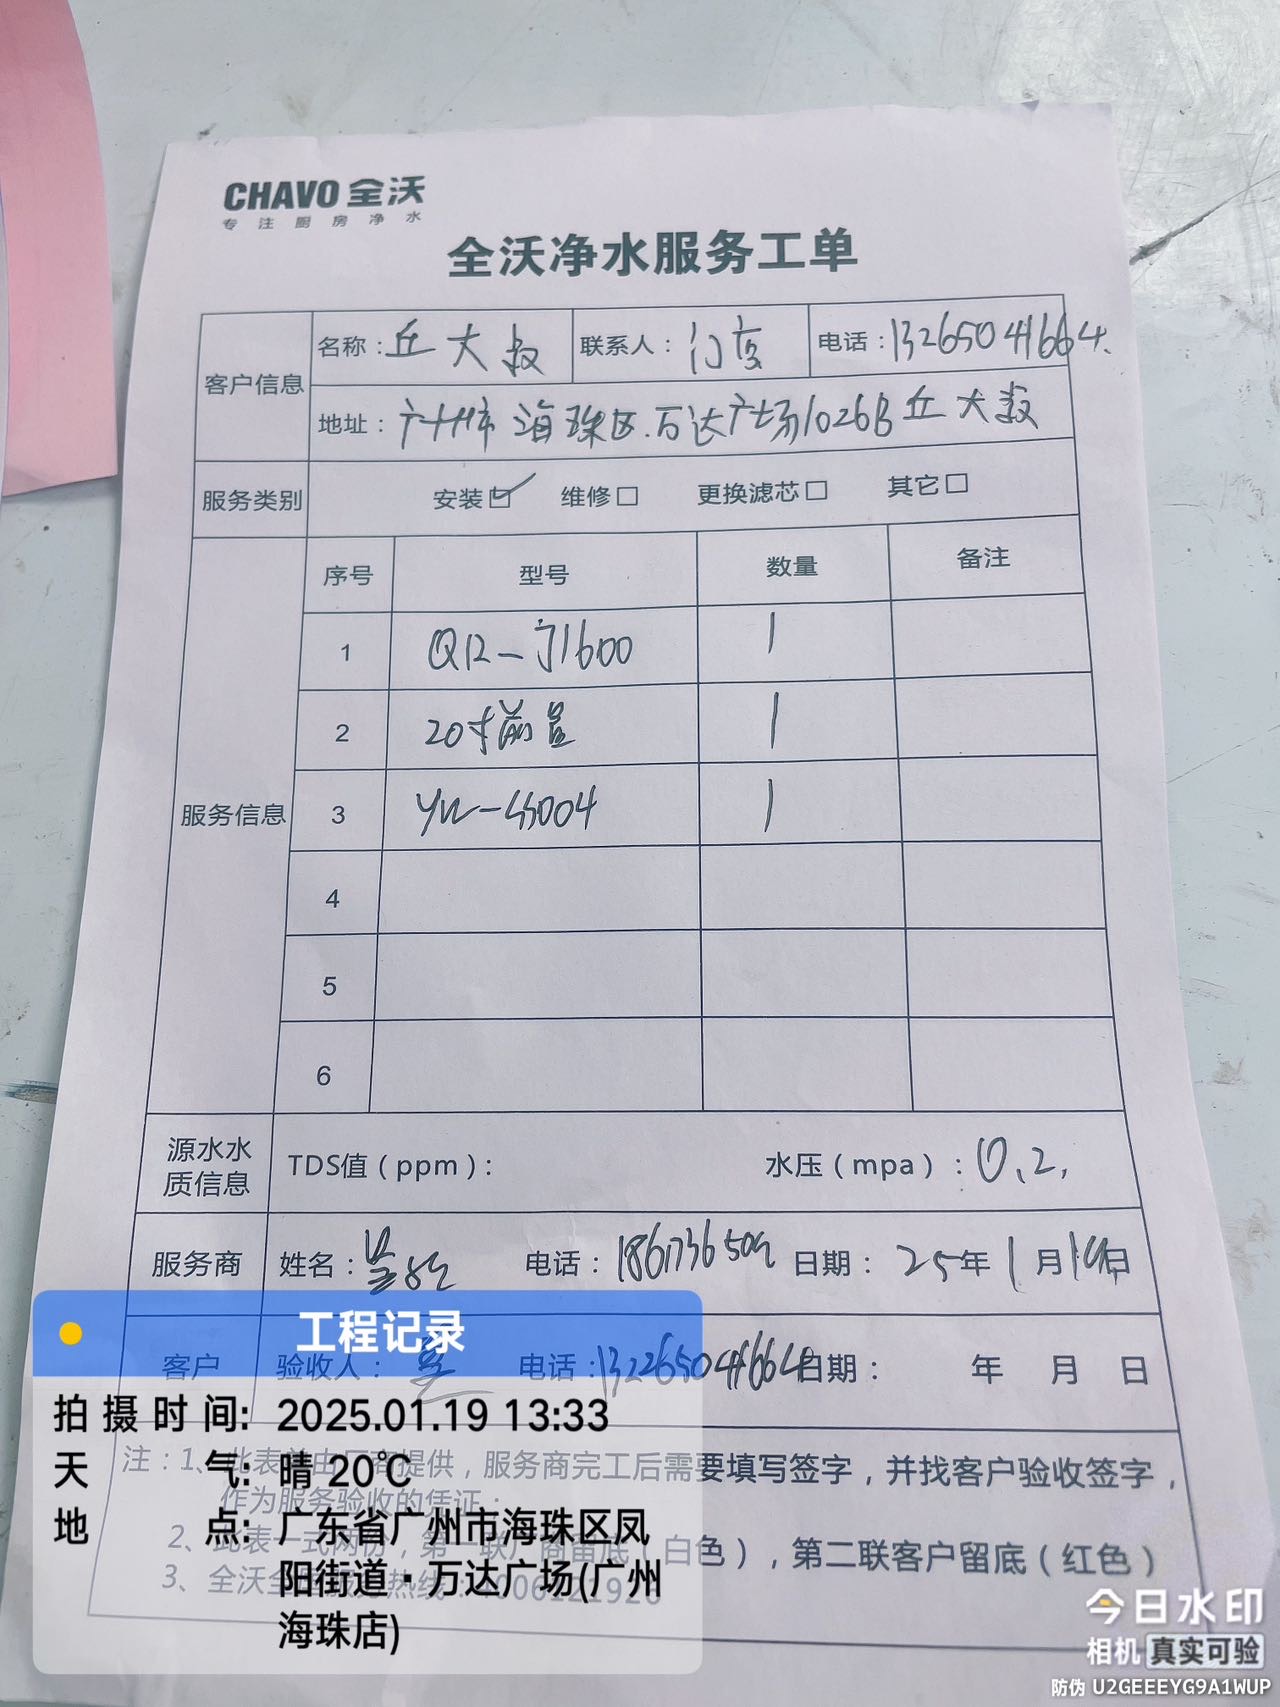 CHAVO 全沃
专注厨房净水
全沃净水服务工单
客户信息 名称：丘大叔 联系人：门店 电话：13265041664.
地址：广州市海珠区.万达广场1026B丘大叔
服务类别 安装☑ 维修□ 更换滤芯□ 其它□
服务信息 序号 型号 数量 备注
1 QR-J1600 1
2 20寸前置 1
3 1
4
5
6
源水水质信息 TDS值（ppm）： 水压（mpa）：0.2.
服务商 姓名： 电话： 日期：25年1月19日
客户 验收人： 电话： 日期： 年 月 日
注：1、此表单由厂商提供，服务商完工后需要填写签字，并找客户验收签字，
作为服务验收的凭证；
2、此表一式两份，第一联厂商留底（白色），第二联客户留底（红色）
3、全沃全国服务热线：4006121926
工程记录
拍摄时间: 2025.01.19 13:33
天气: 晴 20℃
地点: 广东省广州市海珠区凤
阳街道·万达广场(广州
海珠店)
今日水印
相机 真实可验
防伪 U2GEEEYG9A1WUP